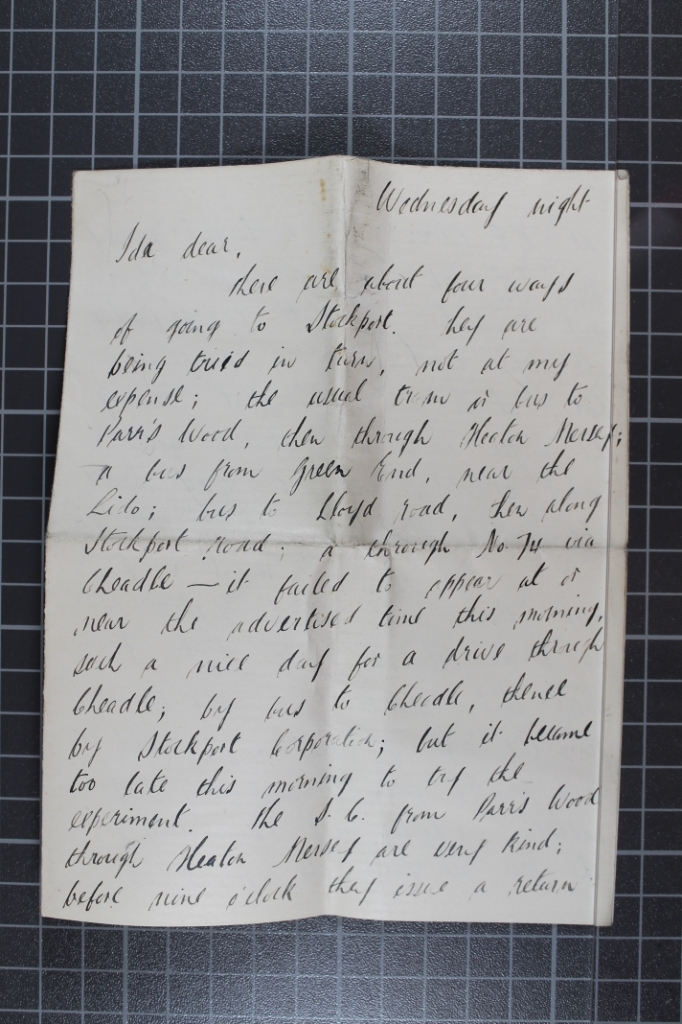 Wednesday night
Ida dear,
there are about four ways
of going to Stockport. They are
being tried in turn, not at my
expense; the usual tram or bus to
Parr's Wood, then through Heaton Mersey;
a bus from Green End, near the
Lido; bus to Lloyd road, then along
Stockport road; a through No. 74 via
Cheadle — it failed to appear at or
near the advertised time this morning,
such a nice day for a drive through
Cheadle; by bus to Cheadle, thence
by Stockport Corporation; but it became
too late this morning to try the
experiment. The S. C. from Parr's Wood
through Heaton Mersey are very kind;
before nine o'clock they issue a return